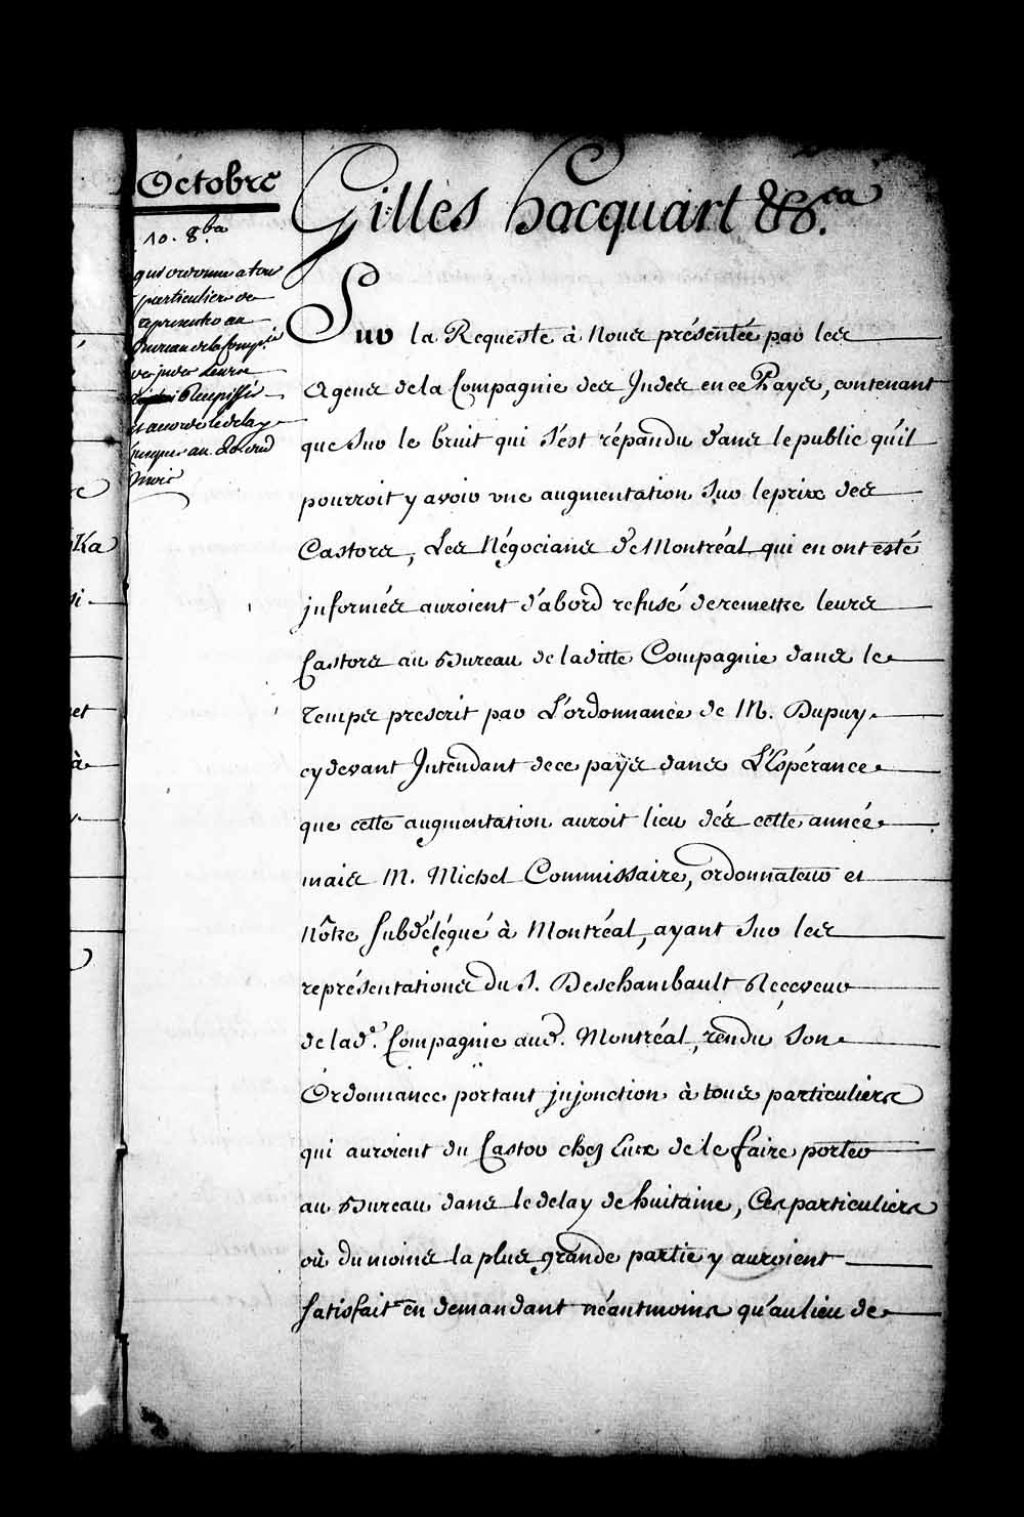 Octobre
10. 8.bre
qui ordonne a tous
particuliers de
representer au
Bureau de la Comp.ie
des indes Leurs
Recepissés
et accorde le delay
jusques au 20. dud
mois
Gilles hocquart &&.ca
Sur la Requeste à Nous présentée par les
Agens de la Compagnie des Indes en ce Pays, contenant
que sur le bruit qui s'est répandu dans le public qu'il
pourroit y avoir une augmentation sur le prix des
Castors, Les Négocians de Montréal qui en ont esté
informés auroient d'abord refusé de remettre leurs
Castors au Bureau de laditte Compagnie dans le
Temps prescrit par L'ordonnance de M. Dupuy
cy devant Intendant de ce païs dans L'Espérance
que cette augmentation auroit lieu dés cette année
mais M. Michel Commissaire, ordonnateur et
Nôtre subdélégué à Montréal, ayant sur les
représentations du S. Deschambault Receveur
de lad.e Compagnie aud. Montréal, rendu son
Ordonnance portant injonction à tous particuliers
qui auroient du Castor chez Eux de le faire porter
au Bureau dans le delay de huitaine, Ces particuliers
où du moins la plus grande partie y auroient
satisfait en demandant néantmoins qu'au lieu de
Ka
si
et
à